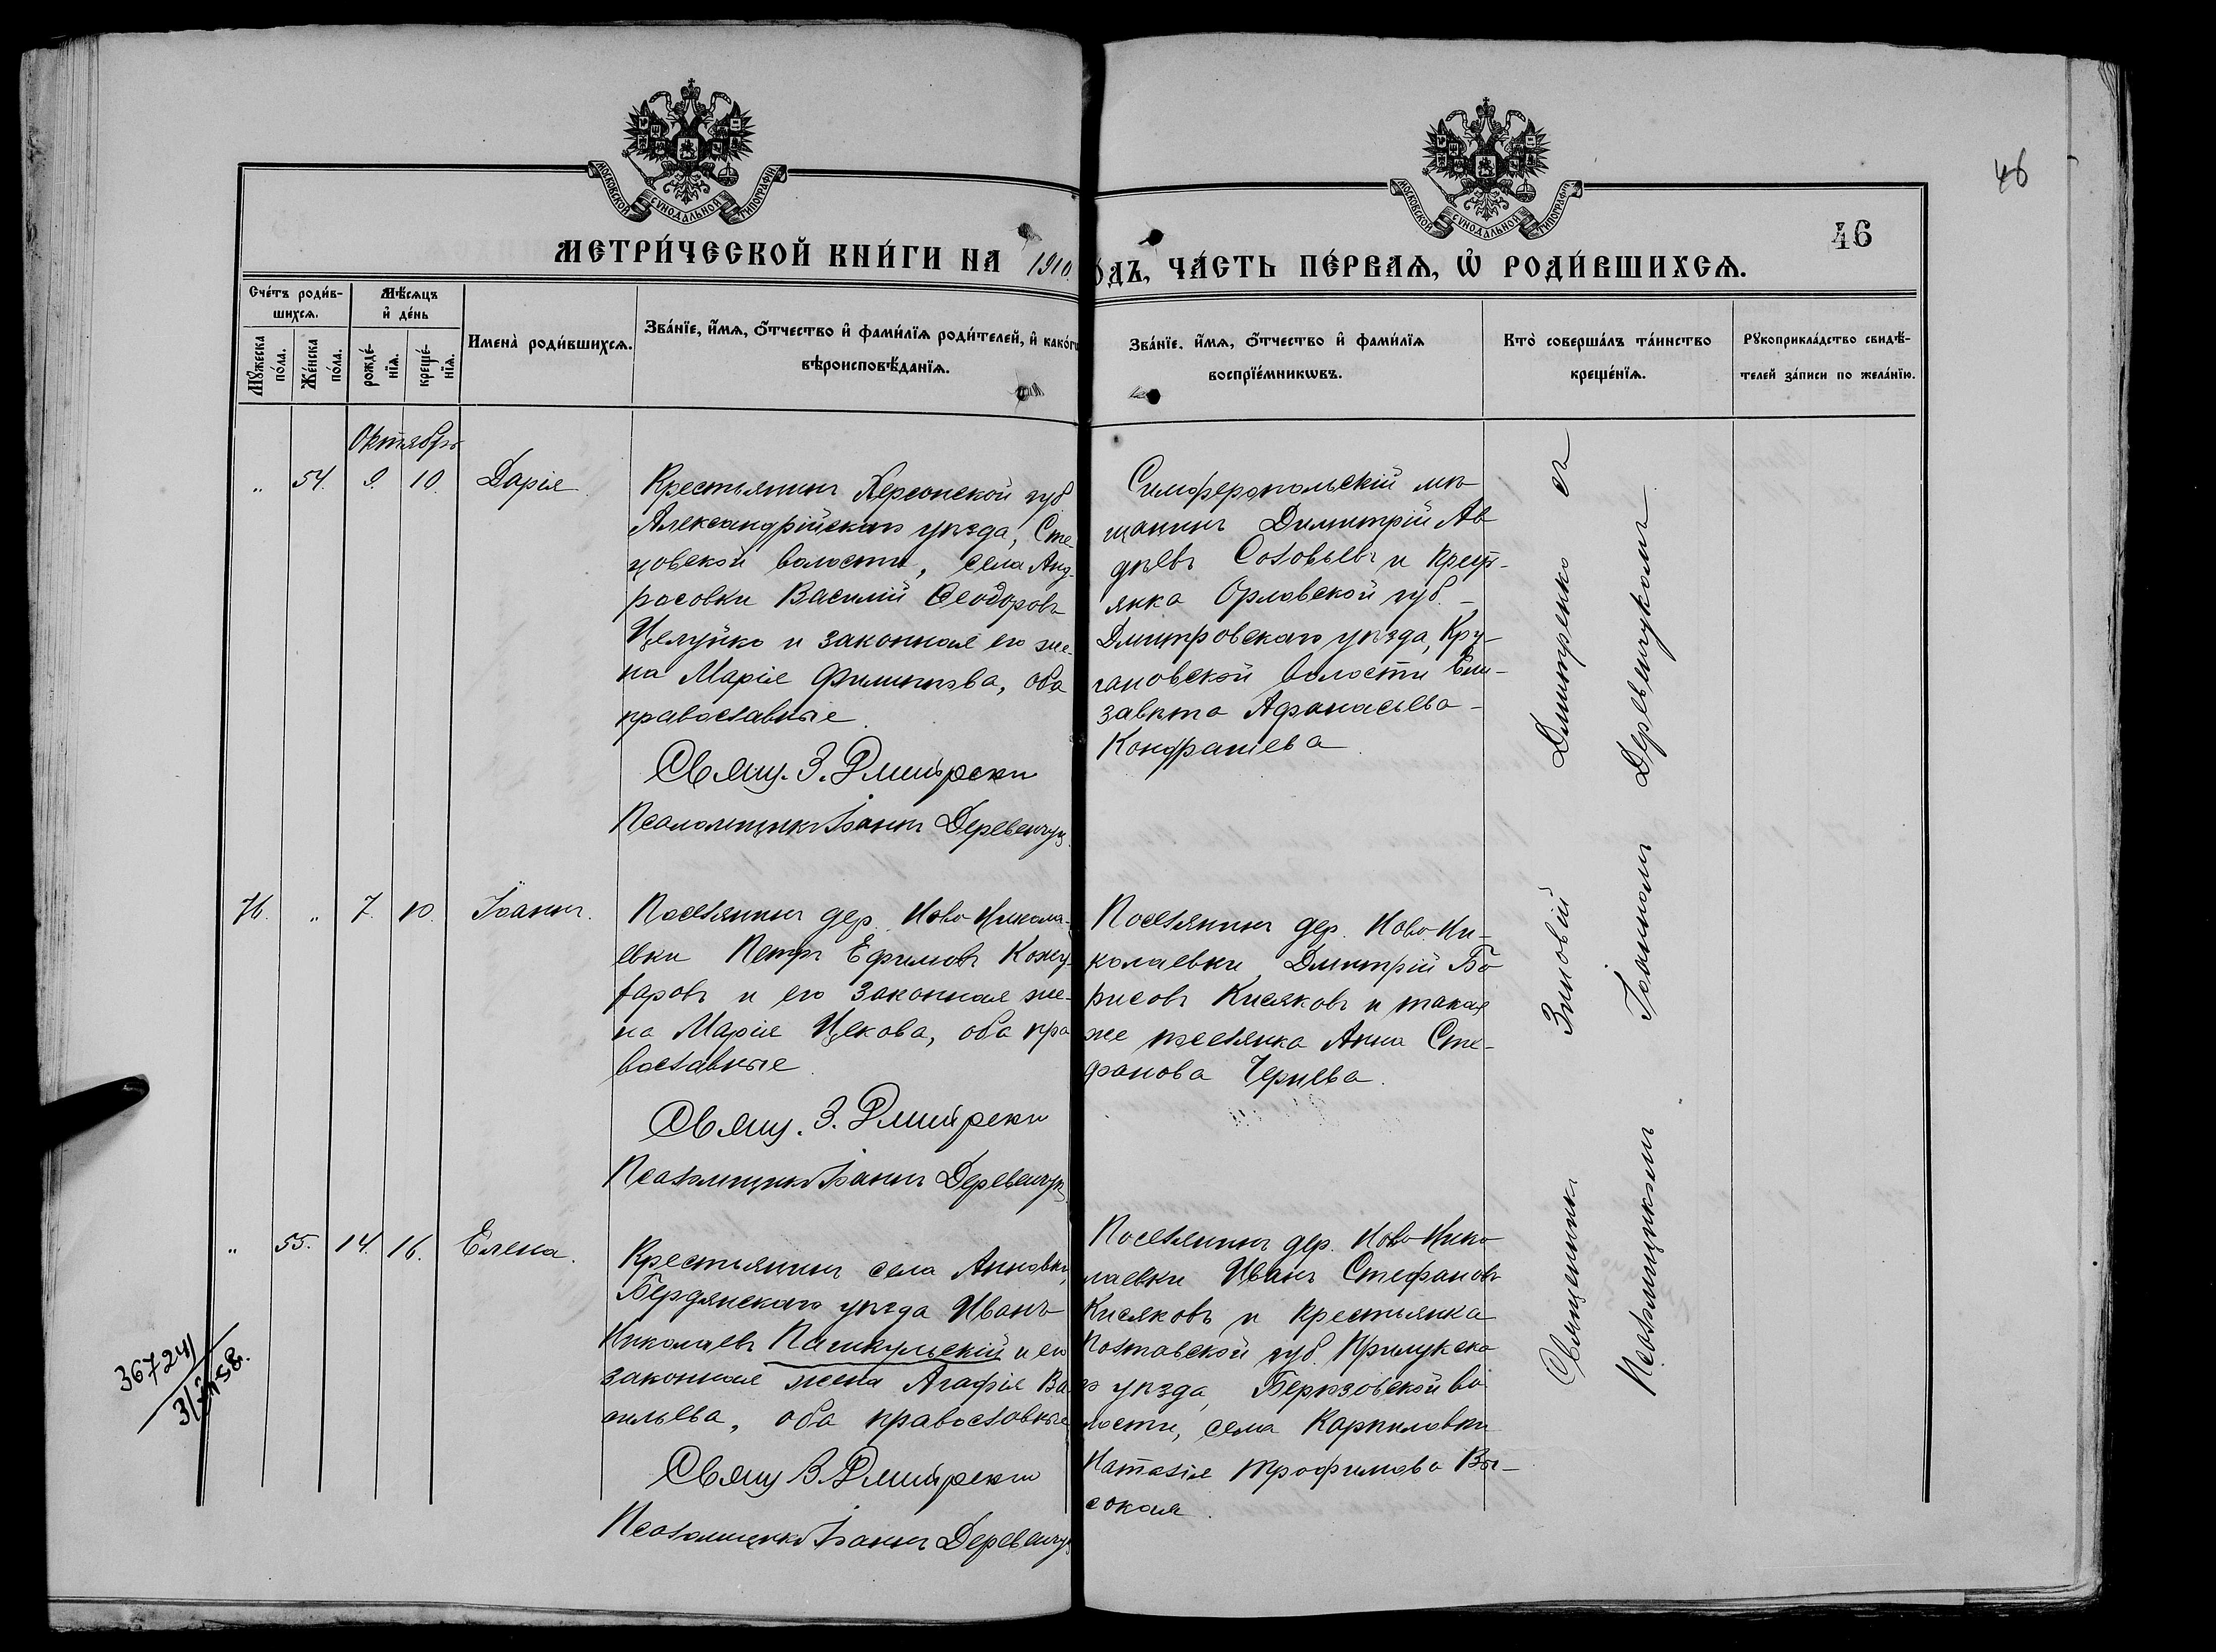 46
46
МОСКОВСКОЙ СѴНОДАЛЬНОЙ ТИПОГРАФІИ
МОСКОВСКОЙ СѴНОДАЛЬНОЙ ТИПОГРАФІИ
МЕТРИ́ЧЕСКОЙ КНИ́ГИ НА 1910
о́дъ, ЧА́СТЬ ПЕ́РВАѦ, Ѡ҆ РОДИ́ВШИХСѦ.
Сче́тъ роди́в-
шихсѧ.
Мꙋ́жеска по́ла.
Же́нска по́ла.
Мѣ́сѧцъ
и҆ де́нь
рожде́-
нїѧ.
креще́-
нїѧ.
Имена̀ роди́вшихсѧ.
Зва́нїе, и҆́мѧ, ѻ҆́тчество и҆ фами́лїѧ роди́телей, и҆ како́гѡ
вѣроисповѣ́данїѧ.
Зва́нїе, и҆́мѧ, ѻ҆́тчество и҆ фами́лїѧ
воспрїе́мникѡвъ.
Кто̀ соверша́лъ та́инство
креще́нїѧ.
Рꙋкоприкла́дство свидѣ́-
телей за́писи по жела́нїю.
Октябрь
" 54. 9. 10. Дарія.
Крестьянинъ Херсонской губ
Александрійскаго уѣзда, Сте-
цовской волости, села Анд-
росовки Василій Ѳеодоровъ
Целуйко и законная его же-
на Марія Филиппова, оба
православные.
Свящ. З. Дмитренко
Псаломщикъ Іоаннъ Деревенчук
Симферопольскій мѣ
щанинъ Димитрій Ав
дѣевъ Соловьевъ и крест-
янка Орловской губ.
Дмитровскаго уѣзда, Кру-
гановской волости Ели-
завета Афанасьева
Кондрашева.
76. " 7. 10. Іоаннъ.
Поселянинъ дер. Ново-Никола-
евки Петръ Ефимовъ Кожу-
харовъ и его законная же-
на Марія Цекова, оба пра
вославные.
Свящ. З. Дмитренко
Псаломщикъ Іоаннъ Деревенчук
Поселянинъ дер. Ново-Ни-
колаевки, Дмитрій Бо
рисовъ Кисяковъ и такая
же поселянка Анна Сте-
фанова Чернева.
" 55. 14. 16. Елена.
Крестьянинъ села Анновки,
Бердянскаго уѣзда Иванъ
Николаевъ Пашкульскій и его
законная жена Агафія Ва
сильева, оба православные
Свящ З. Дмитренко
Псаломщикъ Іоаннъ Деревенчук
Поселянинъ дер. Ново-Нико
лаевки Иванъ Стефановъ
Кисяковъ и крестьянка
Полтавской губ. Прилукска
го уѣзда, Березовской во
лости, села Карпиловки
Наталія Трофимова Вы-
сокая.
Священникъ Зиновій Дмитренко съ
Псаломщикомъ Іоанномъ Деревенчукомъ